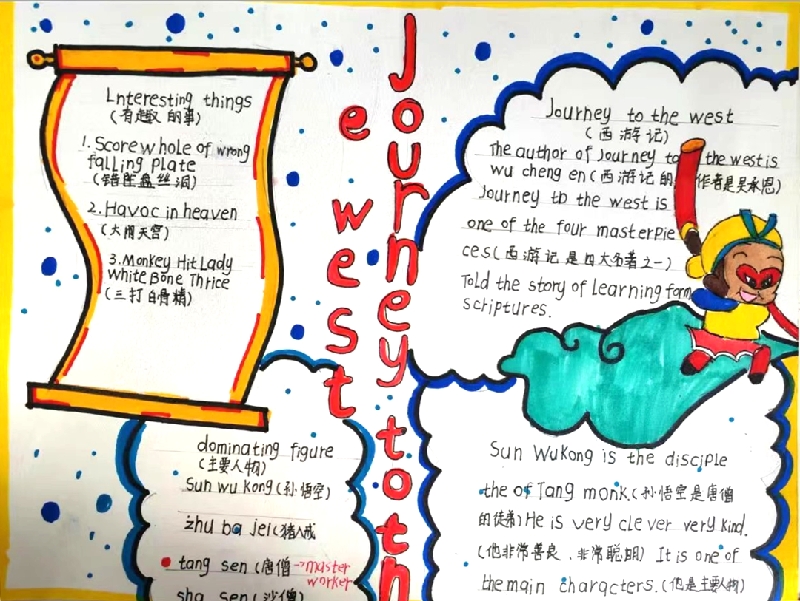 Journey toth
e west
Lnteresting things
(有趣的事)
1. Score whole of wrong
falling plate
(错坠盘丝洞)
2. Havoc in heaven
(大闹天宫)
3. Monkey Hit Lady
White Bone Thrice
(三打白骨精)
Journey to the west
(西游记)
The author of Journey to the west is
wu cheng en (西游记的作者是吴承恩)
Journey to the west is
one of the four masterpie
ces (西游记是四大名著之一)
Told the story of learning form
scriptures.
dominating figure
(主要人物)
Sun wu kong (孙悟空)
zhu ba jei (猪八戒
tang sen (唐僧 →master
worker
sha sen (沙僧)
Sun Wukong is the disciple
the of Tang monk. (孙悟空是唐僧
的徒弟) He is very clever very kind.
(他非常善良、非常聪明) It is one of
the main characters. (他是主要人物)